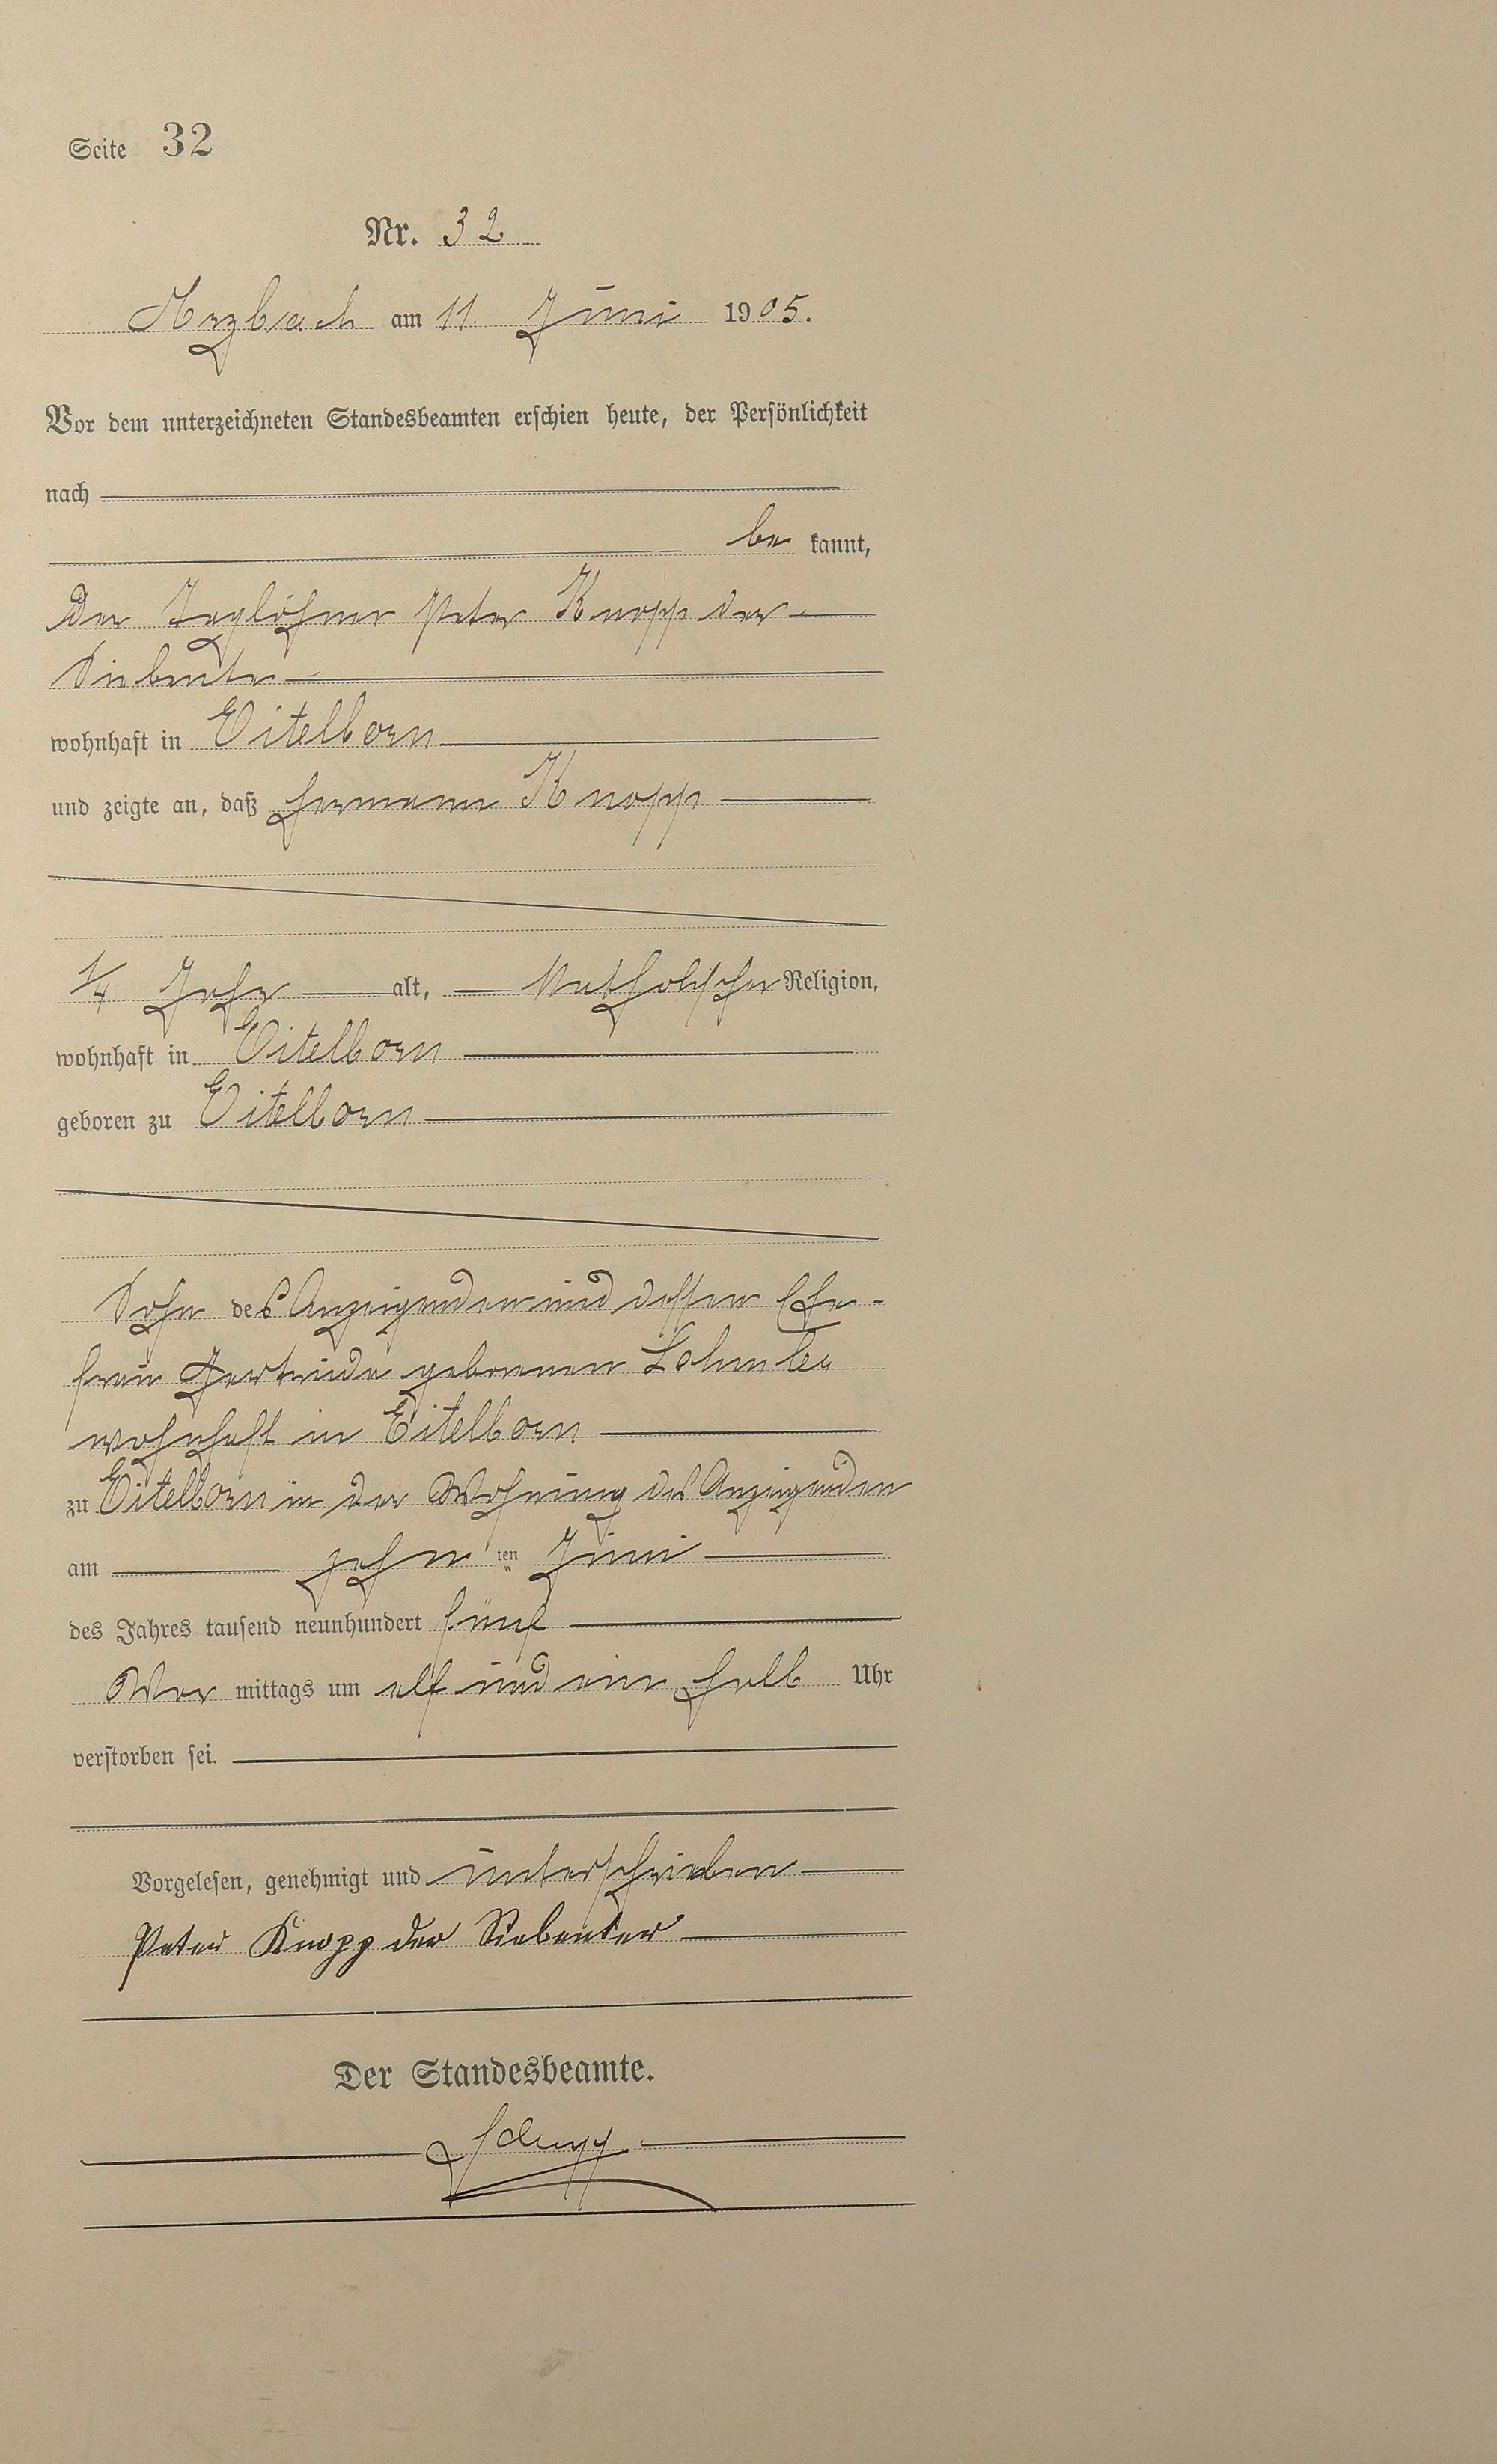 Seite 32
Nr. 32
Arzbach am 11 Juni 1905.
Vor dem unterzeichneten Standesbeamten erschien heute, der Persönlichkeit
nach
be kannt,
der Taglöhner Peter Knopp der
Siebente
wohnhaft in Eitelborn
und zeigte an, daß Hermann Knopp
1/4 Jahr alt, katholischer Religion,
wohnhaft in Eitelborn
geboren zu Eitelborn
Sohn des Anzeigenden und dessen Ehe-
frau Gertrude geborenen
wohnhaft in Eitelborn
zu Eitelborn in der Wohnung des Anzeigenden
am zehn ten Juni
des Jahres tausend neunhundert fünf
Vor mittags um elf und ein halb Uhr
verstorben sei.
Vorgelesen, genehmigt und unterschrieben
Peter Knopp der Siebenter
Der Standesbeamte.